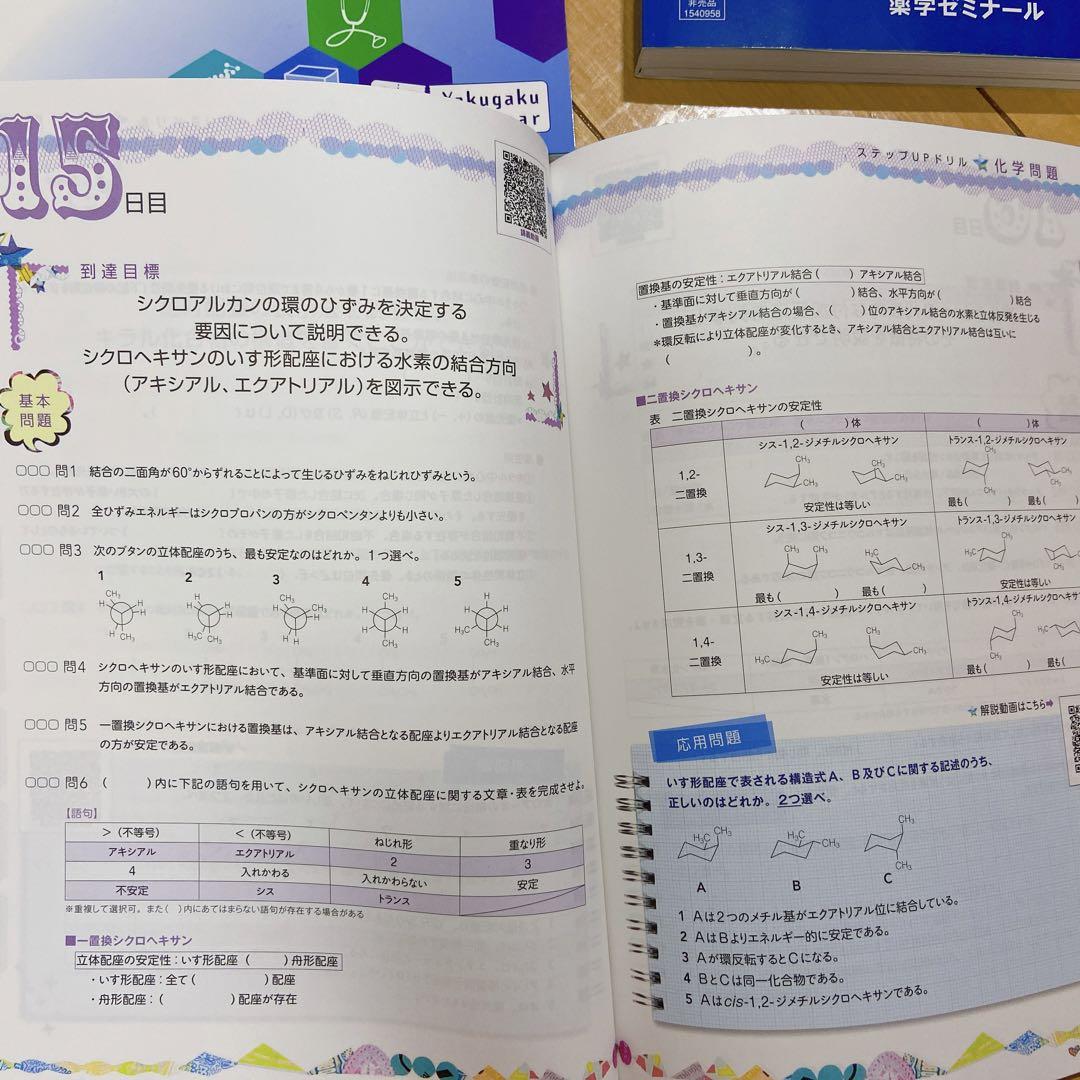 非売品
1540958
薬学ゼミナール
Yakugaku
ar
15日目
講義動画
到達目標
シクロアルカンの環のひずみを決定する
要因について説明できる。
シクロヘキサンのいす形配座における水素の結合方向
（アキシアル、エクアトリアル）を図示できる。
基本
問題
□□□ 問1 結合の二面角が60°からずれることによって生じるひずみをねじれひずみという。
□□□ 問2 全ひずみエネルギーはシクロプロパンの方がシクロペンタンよりも小さい。
□□□ 問3 次のブタンの立体配座のうち、最も安定なのはどれか。1つ選べ。
1 2 3 4 5
CH₃ H H H H CH₃
H H H CH₃ CH₃
CH₃ H H CH₃ H H
H H H H CH₃
H CH₃ H H H
H H H₃C H CH₃
□□□ 問4 シクロヘキサンのいす形配座において、基準面に対して垂直方向の置換基がアキシアル結合、水平
方向の置換基がエクアトリアル結合である。
□□□ 問5 一置換シクロヘキサンにおける置換基は、アキシアル結合となる配座よりエクアトリアル結合となる配座
の方が安定である。
□□□ 問6 （　　）内に下記の語句を用いて、シクロヘキサンの立体配座に関する文章・表を完成させよ。
【語句】
＞（不等号） ＜（不等号） ねじれ形 重なり形
アキシアル エクアトリアル 2 3
4 入れかわる 入れかわらない 安定
不安定 シス トランス
※重複して選択可。また（　）内にあてはまらない語句が存在する場合がある
■一置換シクロヘキサン
立体配座の安定性：いす形配座（　　）舟形配座
・いす形配座：全て（　　　　）配座
・舟形配座：（　　　　）配座が存在
ステップUPドリル ★ 化学問題
置換基の安定性：エクアトリアル結合（　　）アキシアル結合
・基準面に対して垂直方向が（　　　　）結合、水平方向が（　　　　）結合
・置換基がアキシアル結合の場合、（　　）位のアキシアル結合の水素と立体反発を生じる
＊環反転により立体配座が変化するとき、アキシアル結合とエクアトリアル結合は互いに
（　　　　）。
■二置換シクロヘキサン
表 二置換シクロヘキサンの安定性
（　　）体 （　　）体
1,2-
二置換
シス-1,2-ジメチルシクロヘキサン トランス-1,2-ジメチルシクロヘキサン
CH₃ CH₃ CH₃ CH₃ CH₃ CH₃ CH₃ CH₃
安定性は等しい 最も（　　） 最も（　　）
1,3-
二置換
シス-1,3-ジメチルシクロヘキサン トランス-1,3-ジメチルシクロヘキサン
CH₃ CH₃ CH₃ CH₃ CH₃ CH₃
最も（　　） 最も（　　） 安定性は等しい
1,4-
二置換
シス-1,4-ジメチルシクロヘキサン トランス-1,4-ジメチルシクロヘキサン
H₃C CH₃ CH₃ CH₃ CH₃ CH₃
安定性は等しい 最も（　　） 最も（
解説動画はこちら
応用問題
いす形配座で表される構造式A、B及びCに関する記述のうち、
正しいのはどれか。2つ選べ。
H₃C CH₃ H₃C CH₃ CH₃ CH₃
A B C
1 Aは2つのメチル基がエクアトリアル位に結合している。
2 AはBよりエネルギー的に安定である。
3 Aが環反転するとCになる。
4 BとCは同一化合物である。
5 Aはcis-1,2-ジメチルシクロヘキサンである。